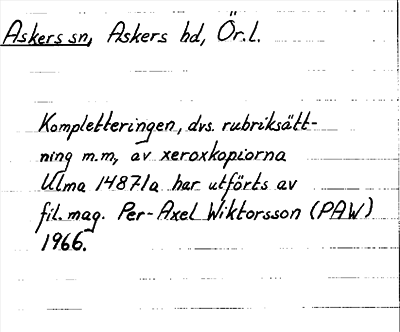 Askers sn, Askers hd, Ör.l.
Kompletteringen, dvs. rubriksätt-
ning m.m, av xeroxkopiorna
Ulma 14871a har utförts av
fil. mag. Per-Axel Wiktorsson (PAW)
1966.